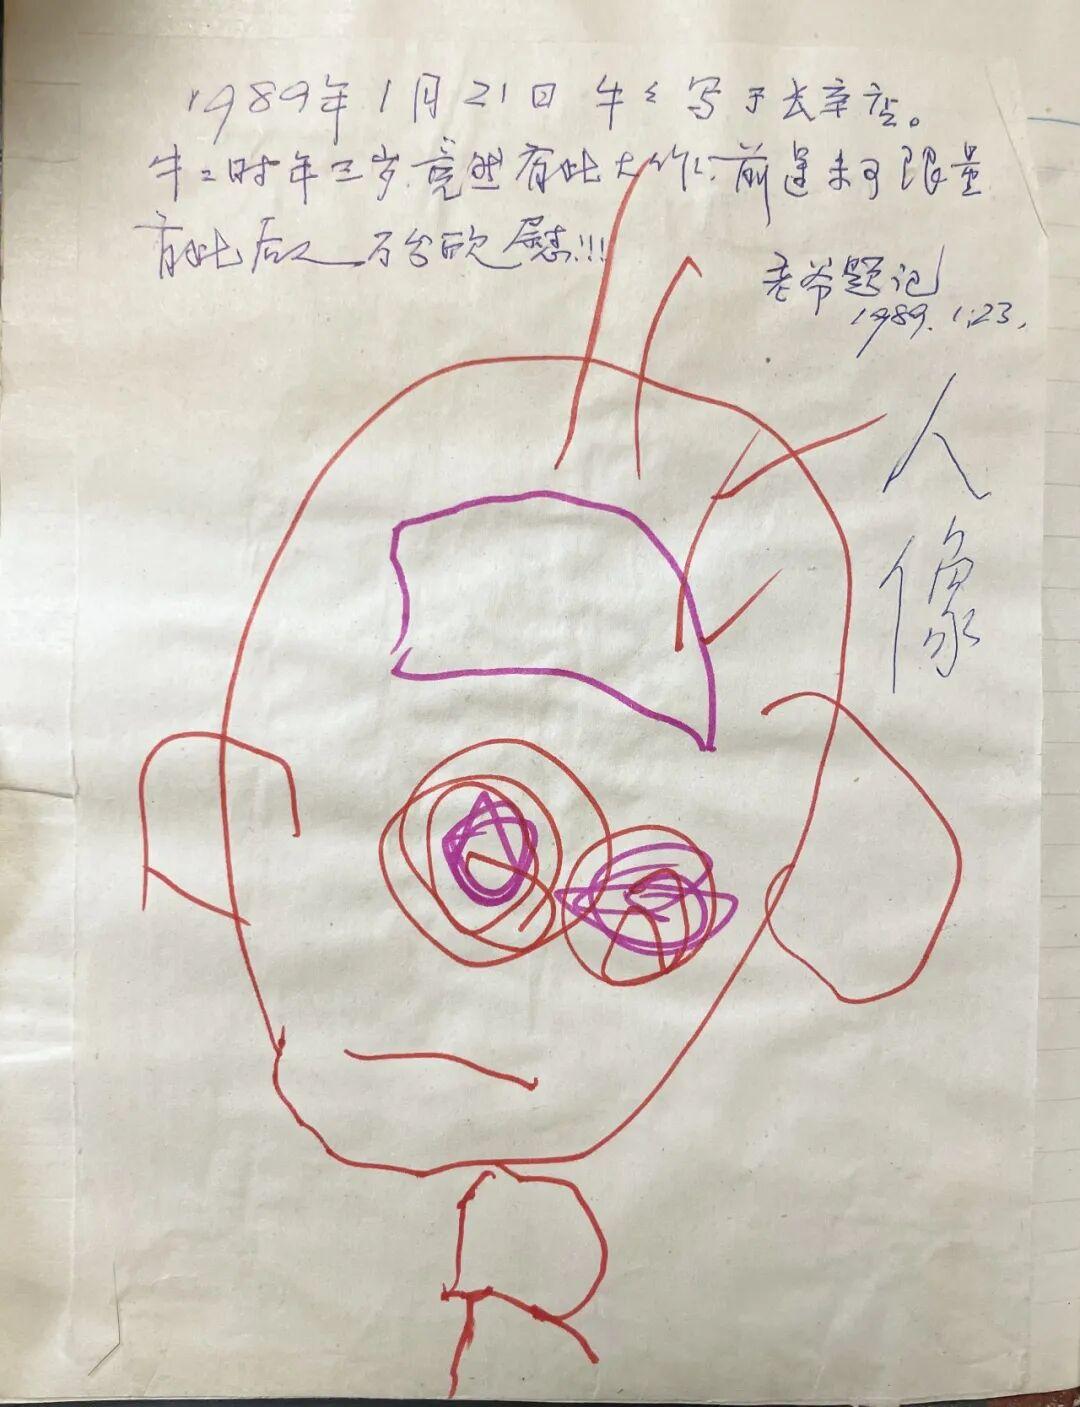 1989年1月21日 牛牛写于长辛店。
牛牛时年三岁,竟然有此大作,前途未可限量
有此后人 万分欣慰!!!
老爷题记
1989.1.23.
人像